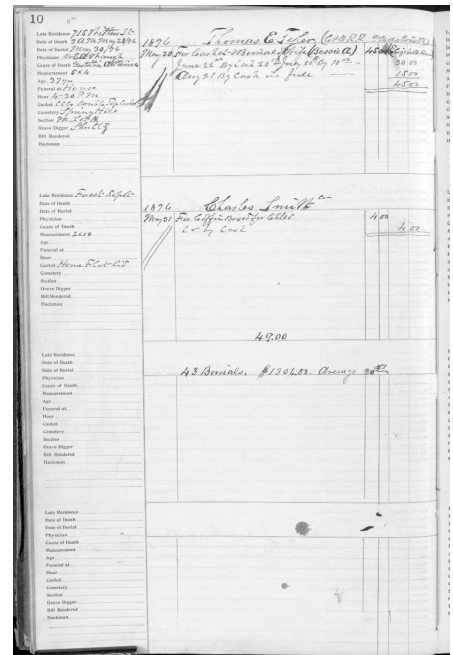 10
Late Residence 715
Date of Death 3 A.M. May 28/96
Date of Burial May 30/96
Physician
Cause of Death
Measurement 5x4
Age 37 yr
Funeral at House
Hour 4-30 P.M.
Casket Cloth
Cemetery Spring Hill
Section
Grave Digger Shultz
Bill Rendered
Hackman
1896 Thomas E. Tyler
May 30 For Casket & Burial Wife (Bessie A) 45 00
June 22 By Cash 20 July 20 By 10 — 30 00
Aug 21 By Cash in full 15 00
45 00
Late Residence
Date of Death
Date of Burial
Physician
Cause of Death
Measurement 2x10
Age
Funeral at
Hour
Casket Home
Cemetery
Section
Grave Digger
Bill Rendered
Hackman
1896 Charles Smith
May 31 For Coffin Box for Child 4 00
Cr By Cash 4 00
49.00
Late Residence
Date of Death
Date of Burial
Physician
Cause of Death
Measurement
Age
Funeral at
Hour
Casket
Cemetery
Section
Grave Digger
Bill Rendered
Hackman
43 Burials. $1306.00. Average
Late Residence
Date of Death
Date of Burial
Physician
Cause of Death
Measurement
Age
Funeral at
Hour
Casket
Cemetery
Section
Grave Digger
Bill Rendered
Hackman